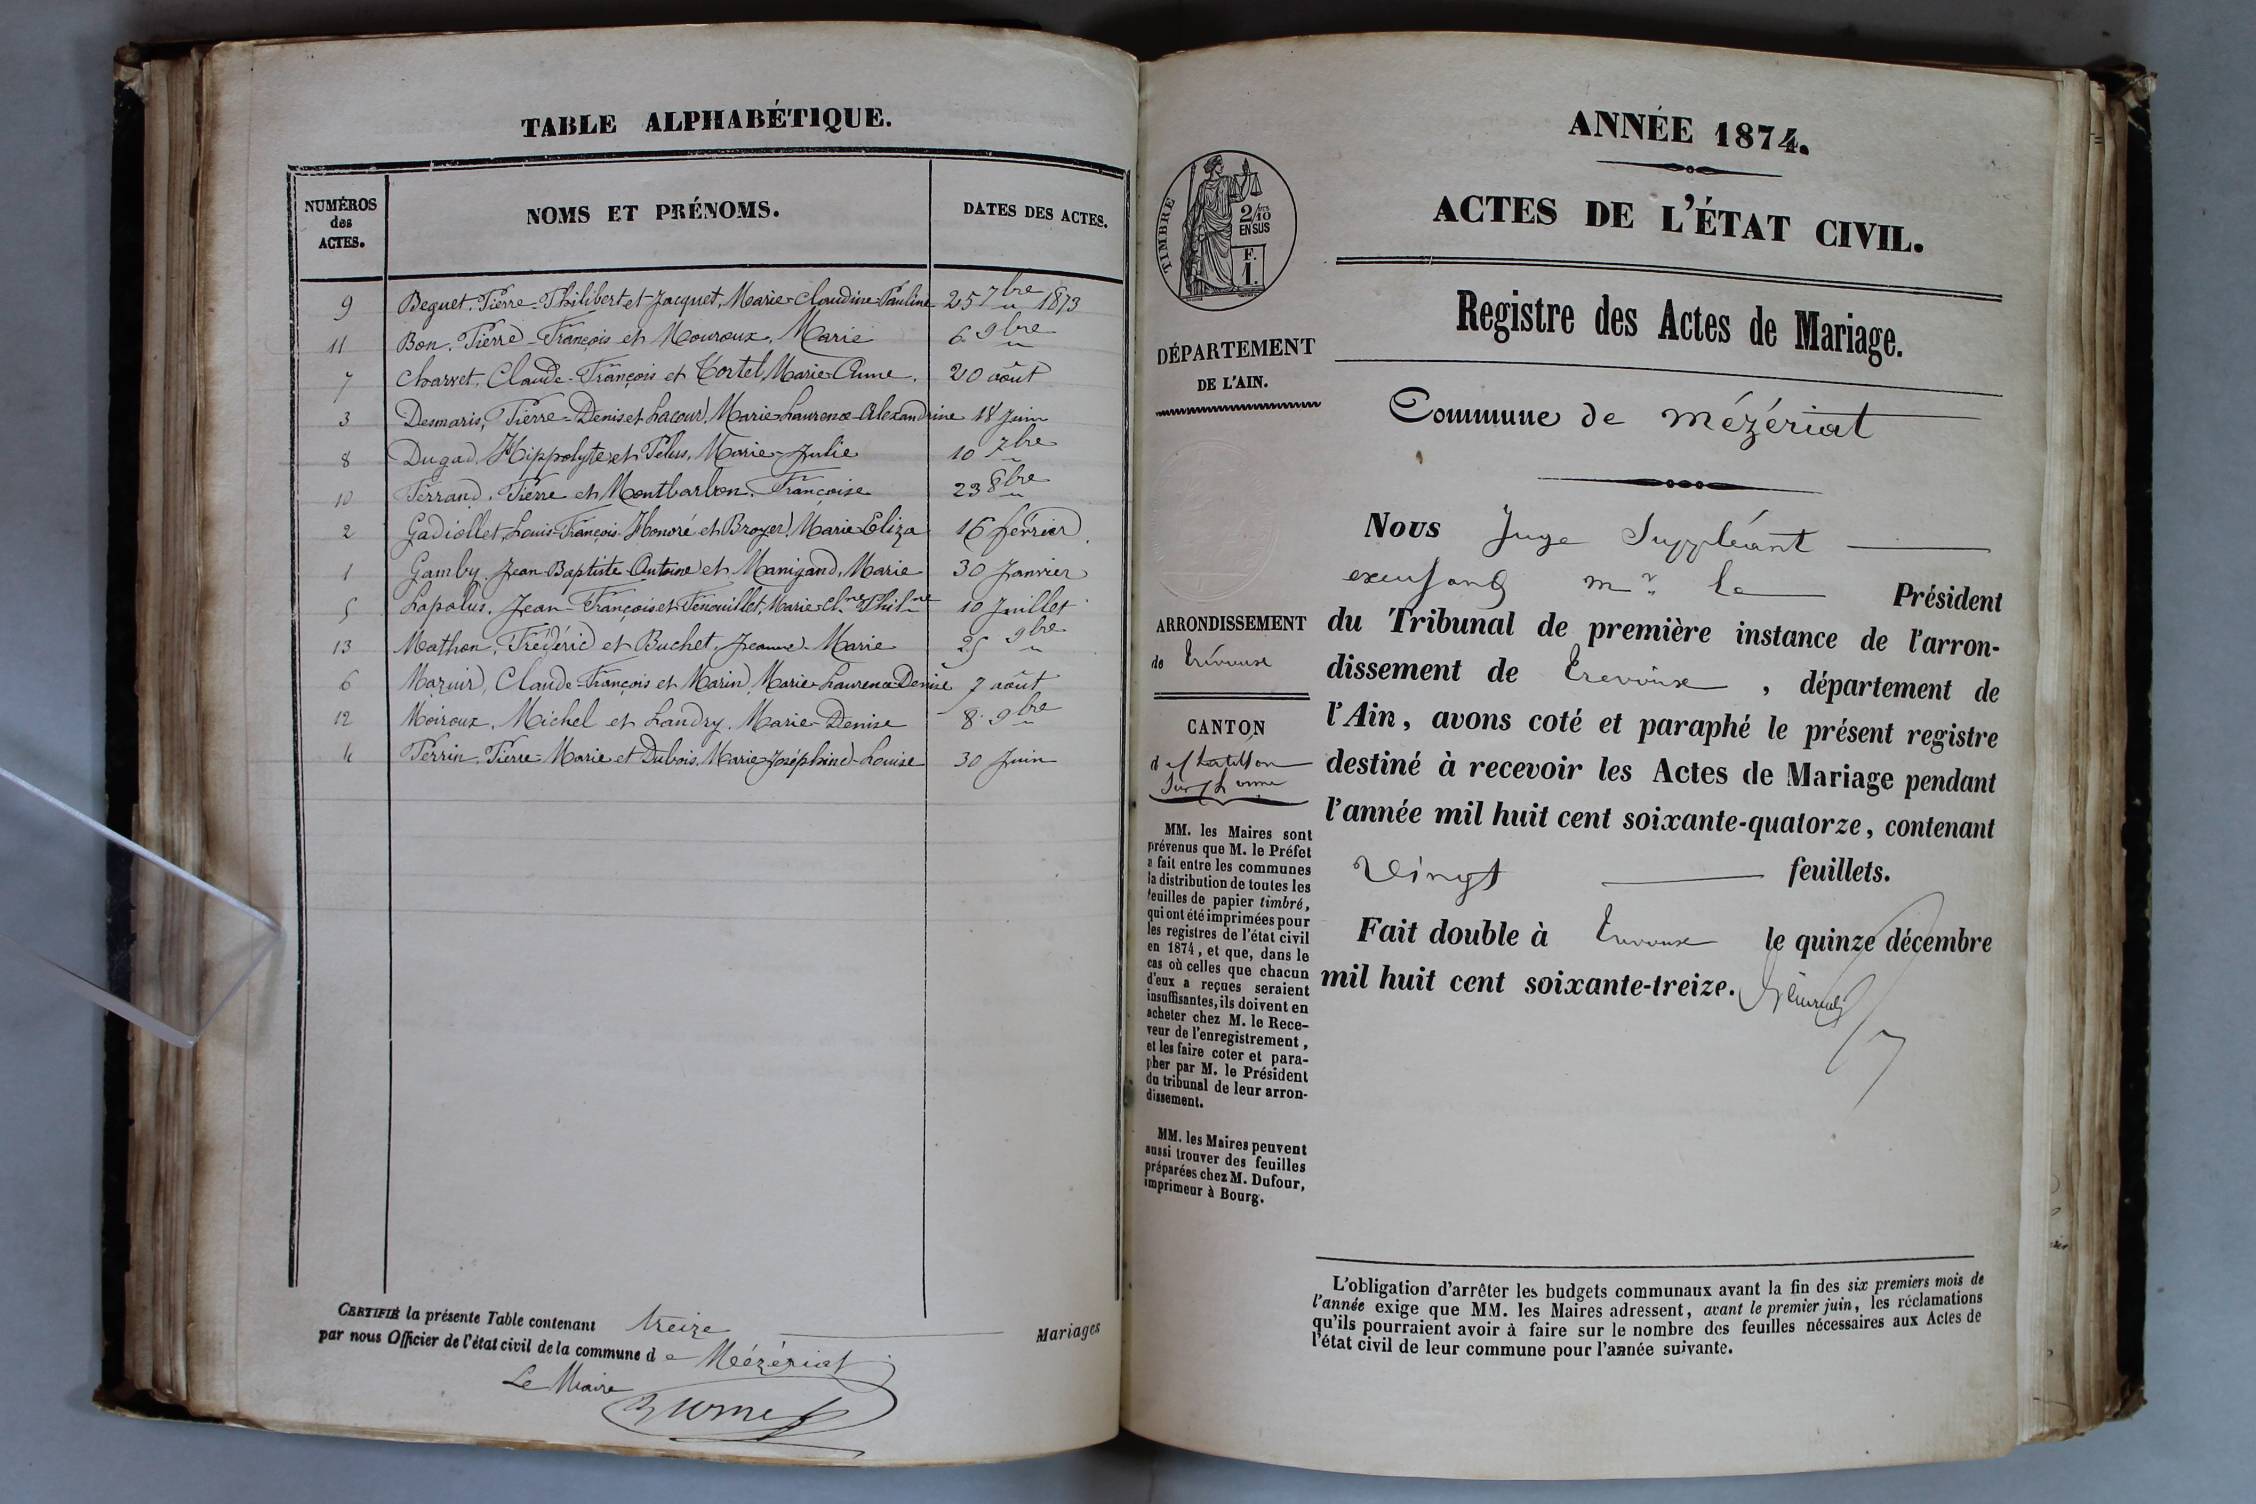 TABLE ALPHABÉTIQUE.
NUMÉROS
des
ACTES.
NOMS ET PRÉNOMS.
DATES DES ACTES.
9 Beguet, Pierre-Philibert et Jacquet, Marie-Claudine-Pauline 25 7bre 1873
11 Bon, Pierre-François et Mouroux, Marie 6 9bre
7 Charvet, Claude-François et Tortel, Marie-Anne. 20 août
3 Desmaris, Pierre-Denis et Lacour, Marie-Laurence-Alexandrine 18 Juin
8 Dugad, Hippolyte et Pelus, Marie-Julie 10 7bre
10 Ferrand, Pierre et Montbarbon, Françoise 23 8bre
2 Gadiollet, Louis-François-Honoré et Broyer, Marie-Eliza 16 février.
1 Gamby, Jean-Baptiste-Antoine et Manigand, Marie 30 Janvier
5 Lapalus, Jean-François et Fenouillet, Marie-Clne Philne 10 Juillet
13 Mathon, Frédéric et Buchet, Jeanne-Marie 25 9bre
6 Mazuir, Claude-François et Marin, Marie-Laurence-Denise 7 août
12 Moiroux, Michel et Landry, Marie-Denise 8 9bre
4 Perrin, Pierre-Marie et Dubois, Marie-Joséphine-Louise 30 Juin
CERTIFIÉ la présente Table contenant treize Mariages
par nous Officier de l'état civil de la commune de Mézériat
Le Maire
ANNÉE 1874.
ACTES DE L'ÉTAT CIVIL.
Registre des Actes de Mariage.
Commune de Mézériat
TIMBRE
2/10
EN SUS
F.
1.
DÉPARTEMENT
DE L'AIN.
ARRONDISSEMENT
de Trévoux
CANTON
de Chatillon
sur Ch
MM. les Maires sont
prévenus que M. le Préfet
a fait entre les communes
la distribution de toutes les
feuilles de papier timbré,
qui ont été imprimées pour
les registres de l'état civil
en 1874, et que, dans le
cas où celles que chacun
d'eux a reçues seraient
insuffisantes, ils doivent en
acheter chez M. le Rece-
veur de l'enregistrement,
et les faire coter et para-
pher par M. le Président
du tribunal de leur arron-
dissement.
MM. les Maires peuvent
aussi trouver des feuilles
préparées chez M. Dufour,
imprimeur à Bourg.
Nous Juge Suppléant
excusant mr le Président
du Tribunal de première instance de l'arron-
dissement de Trevoux, département de
l'Ain, avons coté et paraphé le présent registre
destiné à recevoir les Actes de Mariage pendant
l'année mil huit cent soixante-quatorze, contenant
Vingt feuillets.
Fait double à Trevoux le quinze décembre
mil huit cent soixante-treize.
L'obligation d'arrêter les budgets communaux avant la fin des six premiers mois de
l'année exige que MM. les Maires adressent, avant le premier juin, les réclamations
qu'ils pourraient avoir à faire sur le nombre des feuilles nécessaires aux Actes de
l'état civil de leur commune pour l'année suivante.